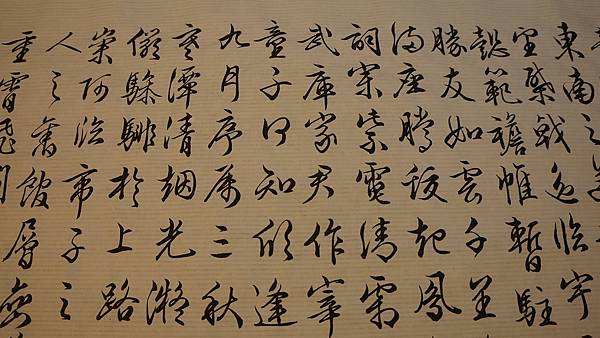 東南之美
望棨戟遙臨宇
懿範襜帷暫駐
勝友如雲千里
滿座騰蛟起鳳
詞宗紫電清霜
武庫家君作宰
童子何知躬逢
九月序屬三秋
寒潭清烟光凝
儼驂騑於上路
崇阿臨帝子之
人之舊館層巒
重霄飛